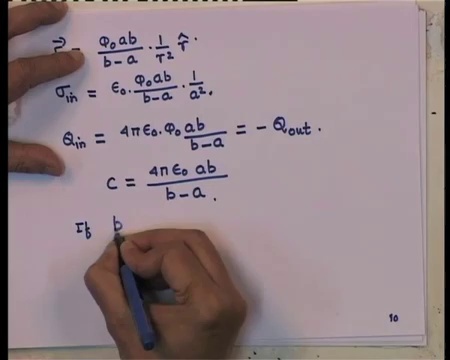 = φ₀ab/b-a · 1/r² r̂.
σin = ε₀. φ₀ab/b-a · 1/a².
Qin = 4πε₀.φ₀ ab/b-a = - Qout.
C = 4πε₀ ab/b-a.
If b
10